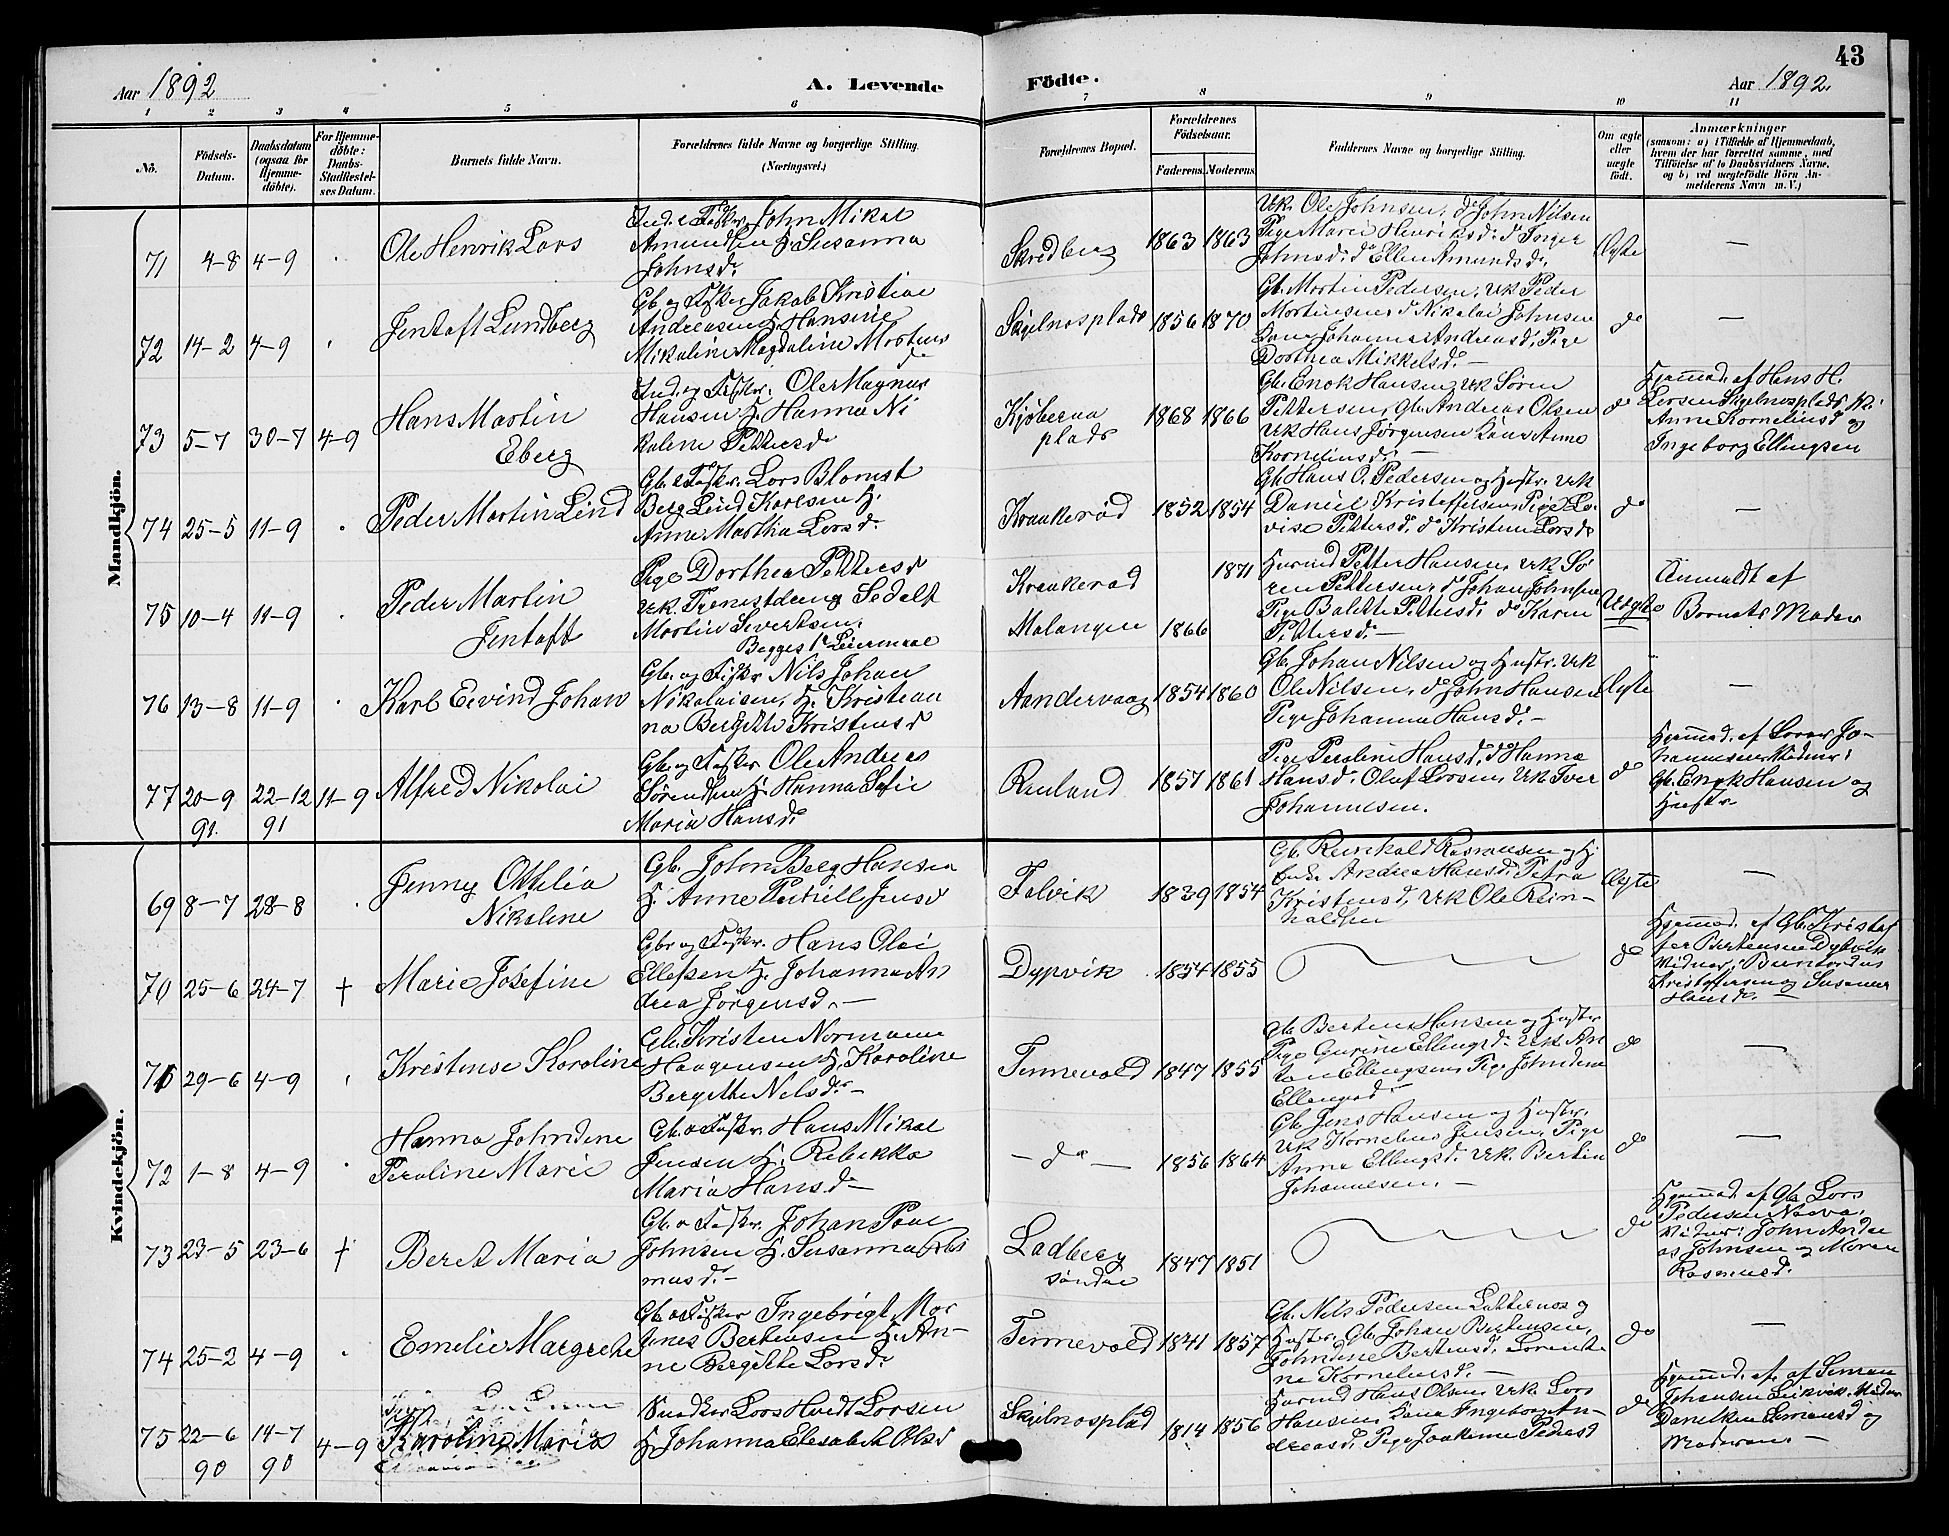 43
Aar 1892
A. Levende
Födte.
Aar 1892.
1 2 3 4 5 6 7 8 9 10 11
No.
Födsels-Datum.
Daabsdatum (ogsaa for Hjemme-döbte).
For Hjemme-döbte: Daabs-Stadfestel-ses Datum.
Barnets fulde Navn.
Forældrenes fulde Navne og borgerlige Stilling.
(Næringsvei.)
Forældrenes Bopæl.
Forældrenes Födselsaar.
Faderens. Moderens.
Faddernes Navne og borgerlige Stilling.
Om ægte eller uægte födt.
Anmærkninger
(saasom: a) i Tilfælde af Hjemmedaab,
hvem der har forrettet samme, med
Tilföielse af to Daabsvidners Navne,
og b) ved uægtefödte Börn An-
melderens Navn m. V.)
Mandkjön.
71 4-8 4-9
Ole Henrik Lars
John Mikal
Amundsen H. Susanna
Johnsd.
Skredberg
1863 1863
Uk. Ole Johnsen, do John Nilsen
Pige Marie Henriksd. do Inger
Johnsd. do Ellen Amundsd.
Ægte
—
72 14-2 4-9
Jentoft Lundberg
Gb og Fisker Jakob Kristian
Andreasen H. Hansine
Mikaline Magdaline Mortensd
Skjelnosplads
1856 1870
Gb. Martin Pedersen, Uk Peder
Mortensen do Nikolai Johnsen
Kone Johanna Andreasd. Pige
Dorthea Mikkelsd. —
do
—
73 5-7 30-7 4-9
Hans Martin
Eberg
Ind. og Fisker. Ole Magnus
Hansen H. Hanna Ni
kaline Pettersd
plads
1868 1866
Gb. Enok Hansen, Uk Søren
Pettersen, Gb. Andreas Olsen
Uk Hans Jørgensen Kone Anne
Kornelinsd. —
do
Hjemmed. af Hans H.
Larsen Skjelnosplads
Anne Kornelinsd og
Ingeborg Ellingsen
74 25-5 11-9
Peder Martin Lind
Gb. Fisker. Lars Blomst
Berg Lind Karlsen H.
Anne Martha Larsd.
Kraakerød
1852 1854
Gb Hans O. Pedersen og Hustr. Uk
Daniel Kristoffersen, Pige Lo-
vise Pettersd. do Kristine Larsd
do
—
75 10-4 11-9
Peder Martin
Jentoft
Pige Dorthea Pettersd
Uk. Tjenestdreng Sedolf
Martin Sivertsen.
Begges 1ste Leiermaal
Kraakerød
Malangen
1866 1871
Petter Hansen, Uk Sø
ren Pettersen, do Johan Johnsen
Pige Balette Pettersd. do Karen
Pettersd. —
Uægte
Anmeldt af
Barnets Moder
76 13-8 11-9
Karl Eivind Johan
Gb. og Fisker Nils Johan
Nikolaisen, H. Kristian
na Bergitte Kristensd
Aandervaag
1854 1860
Gb. Johan Nilsen og Hustr. Uk
Ole Nilsen, do John Hansen
Pige Johanna Hansd. —
Ægte
—
77 20-9 91. 22-12 91 11-9
Alfred Nikolai
Gb. og Fisker Ole Andreas
Sørensen H. Hanna Sofie
Maria Hansd.
Rauland
1857 1861
Pige Peroline Hansd. do Hanna
Hansd. Oluf Larsen, Uk Iver
Johannesen.
do
Hjemmed. af Jo-
hannesen Vidner:
Gb. Enok Hansen og
Hustr
Kvindekjön.
69 8-7 28-8
Jenny Othilia
Nikoline
Gb. Johan Berg Hansen
H. Anne Pernille Jensd
Falvik
1839 1854
Gb. Reinhold Rasmussen og H.
Andrea Hansd. Petra
Kristensd, Uk Ole Rein-
holdsen
Ægte
—
70 25-6 24-7 †
Marie Josefine
Gbr og Fisker. Hans Olai
Ellefsen H. Johanna An
drea Jørgensd. —
Dypvik
1854 1855
do
Hjemmed. af Gb. Kristof
fer Bertensen Dypvik
Vidner: Bernhardus
Kristoffersen og Susanna
Hansd. —
71 29-6 4-9
Kristense Karoline
Gb. Kristen Normann
Haagensen H. Karoline
Bergitte Nilsd. —
Tennevold
1847 1855
Gb Berten Hansen og Hustr
Pige Gurine Ellingsd. Uk. An
ton Ellingsen, Pige Johndine
Ellingsd
do
—
72 1-8 4-9
Hanna Johndine
Peroline Marie
Gb. Fisker Hans Mikal
Jensen H. Rebekka
Maria Hansd —
— do —
1856 1864
Gb Jens Hansen og Hustr.
Uk Kornelius Jensen, Pige
Anna Ellingsd. Uk. Bertin
Johannesen. —
do
—
73 23-5 23-6 †
Beret Maria
Gb. Fisker. Johan Paul
Johnsen H. Susanna Ras
musd. —
Ladberg
søndre
1847 1851
do
Hjemmed. af Gb Lars
Pedersen
Vidner: John Andre
as Johnsen og Maren
Rasmusd.
74 25-2 4-9
Emelie Margrethe
Gb. Fisker Ingebrigt Mar
tines Bertensen H. An-
ne Bergitte Larsd
Tennevold
1841 1857
Gb. Nils Pedersen og
Hustr. Gb. Johan Bertensen,
Johndine Bertensd. Lorents
ne Kornelinsd. —
do
—
75 22-6 90 14-7 90 4-9
Karoline Maria
Snedker Lars Hvidt Larsen
H. Johanna Elisabeth Olsd
Skjelnosplad
1814 1856
Hans Olsen Uk. Lars
Hansen, Kone Ingeborg An-
dreasd. Pige Joakime Pedersd
do
Hjemmed. af Simon
Johansen Leikvik. Vidner
Danelken Simonsd og
Moderen. —